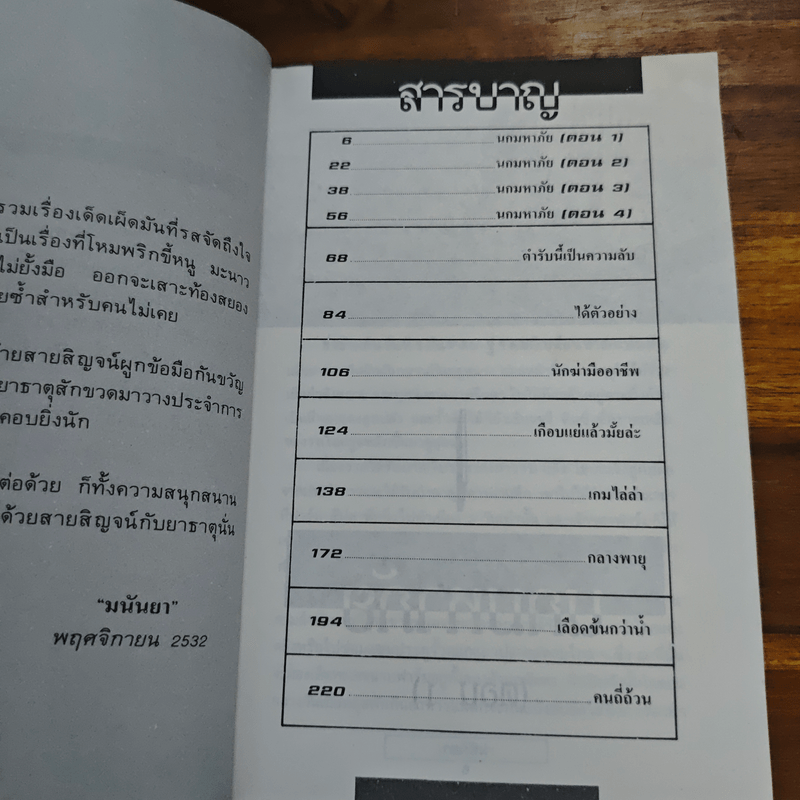 รวมเรื่องเด็ดเผ็ดมันที่รสจัดถึงใจ
เป็นเรื่องที่โหมพริกขี้หนู มะนาว
ไม่ยั้งมือ ออกจะเสาะท้องสยอง
ซ้ำสำหรับคนไม่เคย
สายสิญจน์ผูกข้อมือกันขวัญ
ยาธาตุสักขวดมาวางประจำการ
คอบยิ่งนัก
ต่อด้วย ก็ทั้งความสนุกสนาน
ด้วยสายสิญจน์กับยาธาตุนั่น
“มนันยา”
พฤศจิกายน 2532
สารบาญ
6 นกมหาภัย (ตอน 1)
22 นกมหาภัย (ตอน 2)
38 นกมหาภัย (ตอน 3)
56 นกมหาภัย (ตอน 4)
68 ตำรับนี้เป็นความลับ
84 ได้ตัวอย่าง
106 นักฆ่ามืออาชีพ
124 เกือบแย่แล้วมั้ยล่ะ
138 เกมไล่ล่า
172 กลางพายุ
194 เลือดข้นกว่าน้ำ
220 คนถี่ถ้วน